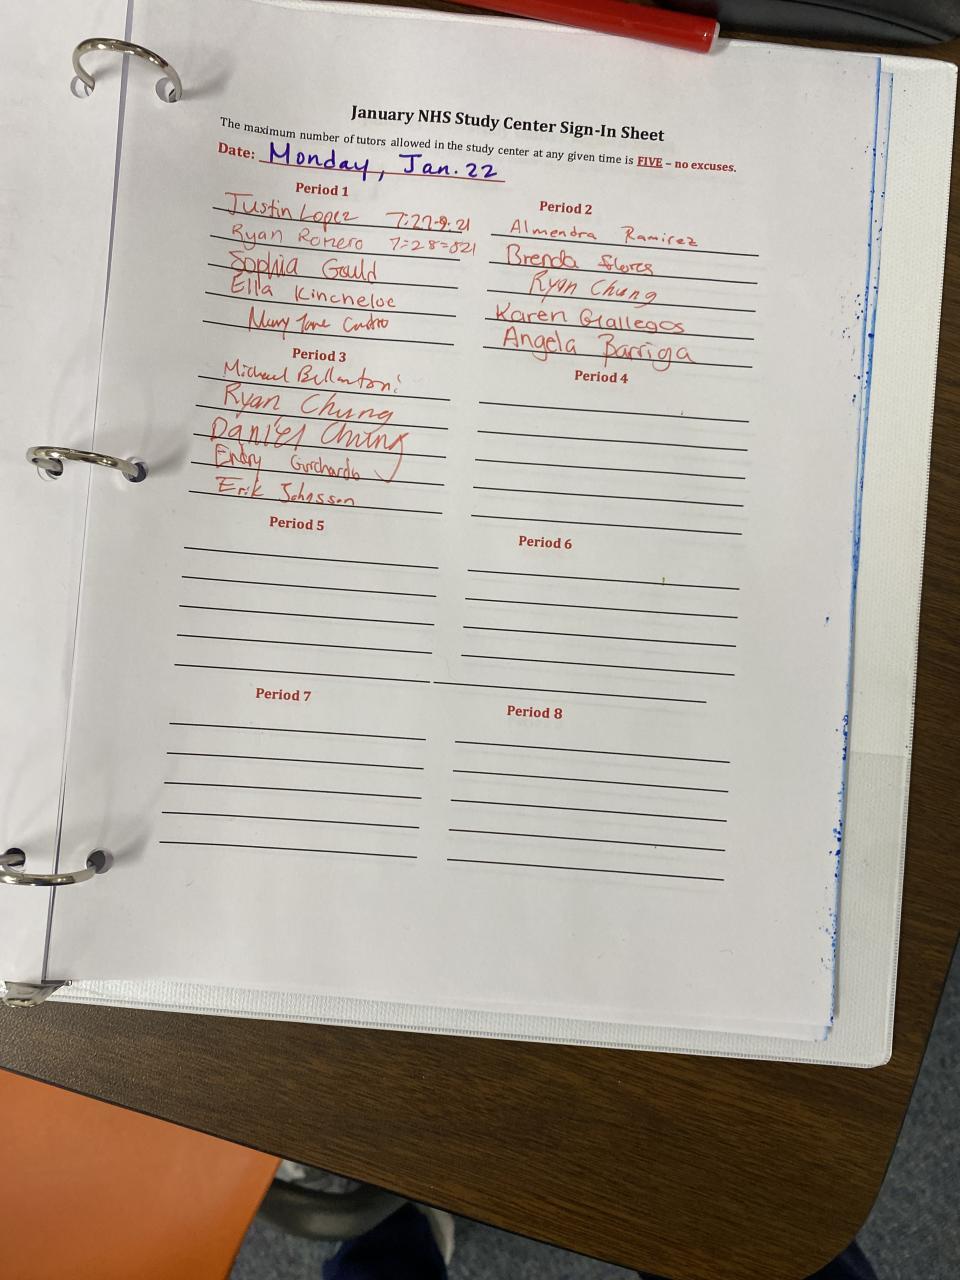 January NHS Study Center Sign-In Sheet
The maximum number of tutors allowed in the study center at any given time is FIVE – no excuses.
Date: Monday, Jan. 22
Period 1
Justin Lopez 7:27-9:21
Ryan Romero 7:28-821
Sophia Gould
Ella Kincheloe
Mary Jane Castro
Period 2
Almendra Ramirez
Brenda Flores
Ryan Chung
Karen Gallegos
Angela Barriga
Period 3
Michael Bellantoni
Ryan Chung
Daniel Chung
Endry
Erik Johnsson
Period 4
Period 5
Period 6
Period 7
Period 8